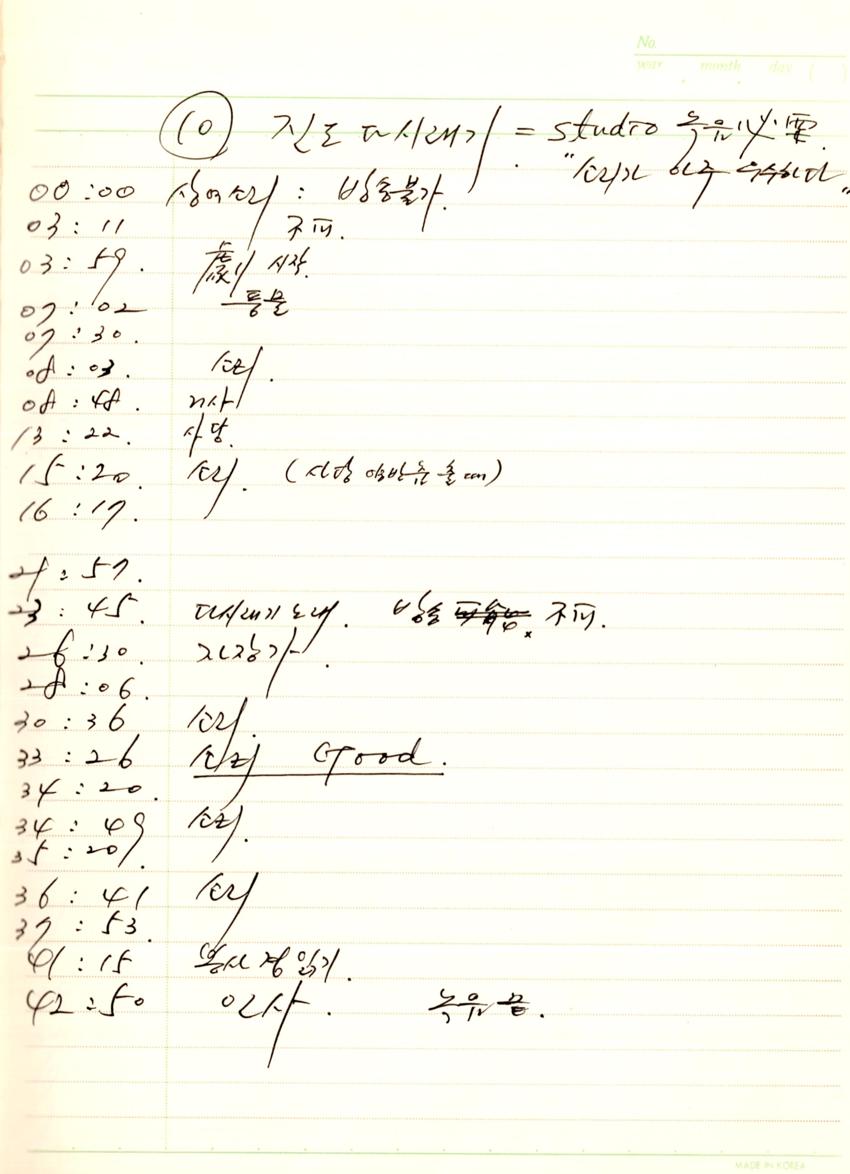 No.
year month day ( )
⑩ 진도 다시래기 = studio 녹음 必要.
"소리가 아주 우수하다"
00:00 상여소리 : 방송불가.
03:11 不可.
03:59. 劇 시작.
07:02 풍물
07:30.
08:03. 소리.
08:48. 거사
13:22. 사당.
15:20. 소리. (사당 춤 출 때)
16:17.
21:57.
23:45. 다시래기 노래. 방송 不可.
26:30. 자장가.
28:06.
30:36 소리.
33:26 소리 Good.
34:20.
34:49 소리.
35:20.
36:41 소리
37:53.
41:15 봉사 경 읽기.
42:50 인사. 녹음 끝.
MADE IN KOREA